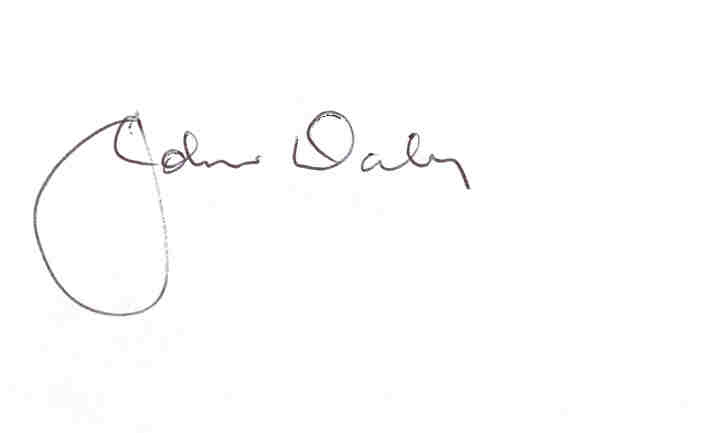 John Daly